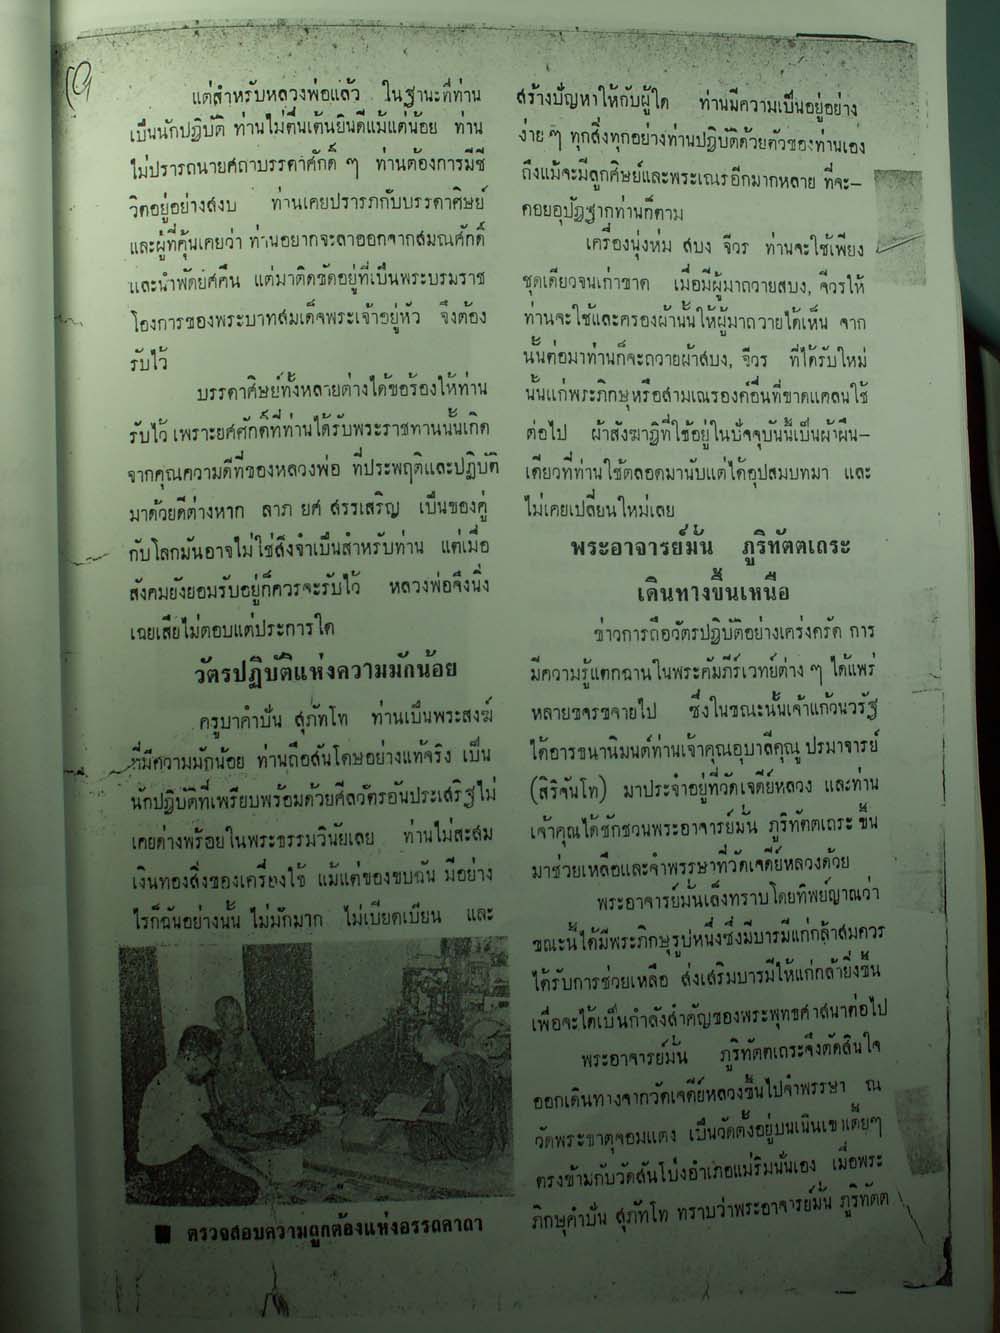 แต่สำหรับหลวงพ่อแล้ว ในฐานะที่ท่าน
เป็นนักปฏิบัติ ท่านไม่ตื่นเต้นยินดีแม้แต่น้อย ท่าน
ไม่ปรารถนายศถาบรรดาศักดิ์ ๆ ท่านต้องการมีชี
วิตอยู่อย่างสงบ ท่านเคยปรารภกับบรรดาศิษย์
และผู้ที่คุ้นเคยว่า ท่านอยากจะลาออกจากสมณศักดิ์
และนำพัดยศคืน แต่มาติดขัดอยู่ที่เป็นพระบรมราช
โองการของพระบาทสมเด็จพระเจ้าอยู่หัว จึงต้อง
รับไว้
บรรดาศิษย์ทั้งหลายต่างได้ขอร้องให้ท่าน
รับไว้ เพราะยศศักดิ์ที่ท่านได้รับพระราชทานนั้นเกิด
จากคุณความดีที่ของหลวงพ่อ ที่ประพฤติและปฏิบัติ
มาด้วยดีต่างหาก ลาภ ยศ สรรเสริญ เป็นของคู่
กับโลกมันอาจไม่ใช่สิ่งจำเป็นสำหรับท่าน แต่เมื่อ
สังคมยังยอมรับอยู่ก็ควรจะรับไว้ หลวงพ่อจึงนิ่ง
เฉยเสียไม่ตอบแต่ประการใด
วัตรปฏิบัติแห่งความมักน้อย
ครูบาคำปัน สุภัทโท ท่านเป็นพระสงฆ์
ที่มีความมักน้อย ท่านถือสันโดษอย่างแท้จริง เป็น
นักปฏิบัติที่เพรียบพร้อมด้วยศีลวัตรอันประเสริฐไม่
เคยด่างพร้อยในพระธรรมวินัยเลย ท่านไม่สะสม
เงินทองสิ่งของเครื่องใช้ แม้แต่ของขบฉัน มีอย่าง
ไรก็ฉันอย่างนั้น ไม่มักมาก ไม่เบียดเบียน และ
■ ตรวจสอบความถูกต้องแห่งอรรถคาถา
สร้างปัญหาให้กับผู้ใด ท่านมีความเป็นอยู่อย่าง
ง่าย ๆ ทุกสิ่งทุกอย่างท่านปฏิบัติด้วยตัวของท่านเอง
ถึงแม้จะมีลูกศิษย์และพระเณรอีกมากหลาย ที่จะ-
คอยอุปัฏฐากท่านก็ตาม
เครื่องนุ่งห่ม สบง จีวร ท่านจะใช้เพียง
ชุดเดียวจนเก่าขาด เมื่อมีผู้มาถวายสบง, จีวรให้
ท่านจะใช้และครองผ้านั้นให้ผู้มาถวายได้เห็น จาก
นั้นต่อมาท่านก็จะถวายผ้าสบง, จีวร ที่ได้รับใหม่
นั้นแก่พระภิกษุหรือสามเณรองค์อื่นที่ขาดแคลนใช้
ต่อไป ผ้าสังฆาฏิที่ใช้อยู่ในปัจจุบันนี้เป็นผ้าผืน-
เดียวที่ท่านใช้ตลอดมานับแต่ได้อุปสมบทมา และ
ไม่เคยเปลี่ยนใหม่เลย
พระอาจารย์มั่น ภูริทัตตเถระ
เดินทางขึ้นเหนือ
ข่าวการถือวัตรปฏิบัติอย่างเคร่งครัด การ
มีความรู้แตกฉานในพระคัมภีร์เวทย์ต่าง ๆ ได้แพร่
หลายขจรขจายไป ซึ่งในขณะนั้นเจ้าแก้วนวรัฐ
ได้อารธนานิมนต์ท่านเจ้าคุณอุบาลีคุณู ปรมาจารย์
(สิริจันโท) มาประจำอยู่ที่วัดเจดีย์หลวง และท่าน
เจ้าคุณได้ชักชวนพระอาจารย์มั่น ภูริทัตตเถระ ขึ้น
มาช่วยเหลือและจำพรรษาที่วัดเจดีย์หลวงด้วย
พระอาจารย์มั่นเล็งทราบโดยทิพย์ญาณว่า
ขณะนี้ได้มีพระภิกษุรูปหนึ่งซึ่งมีบารมีแก่กล้าสมควร
ได้รับการช่วยเหลือ ส่งเสริมบารมีให้แก่กล้ายิ่งขึ้น
เพื่อจะได้เป็นกำลังสำคัญของพระพุทธศาสนาต่อไป
พระอาจารย์มั่น ภูริทัตตเถระจึงตัดสินใจ
ออกเดินทางจากวัดเจดีย์หลวงขึ้นไปจำพรรษา ณ
วัดพระธาตุจอมแตง เป็นวัดตั้งอยู่บนเนินเขาเตี้ยๆ
ตรงข้ามกับวัดสันโป่งอำเภอแม่ริมนั่นเอง เมื่อพระ
ภิกษุคำปัน สุภัทโท ทราบว่าพระอาจารย์มั่น ภูริทัตต